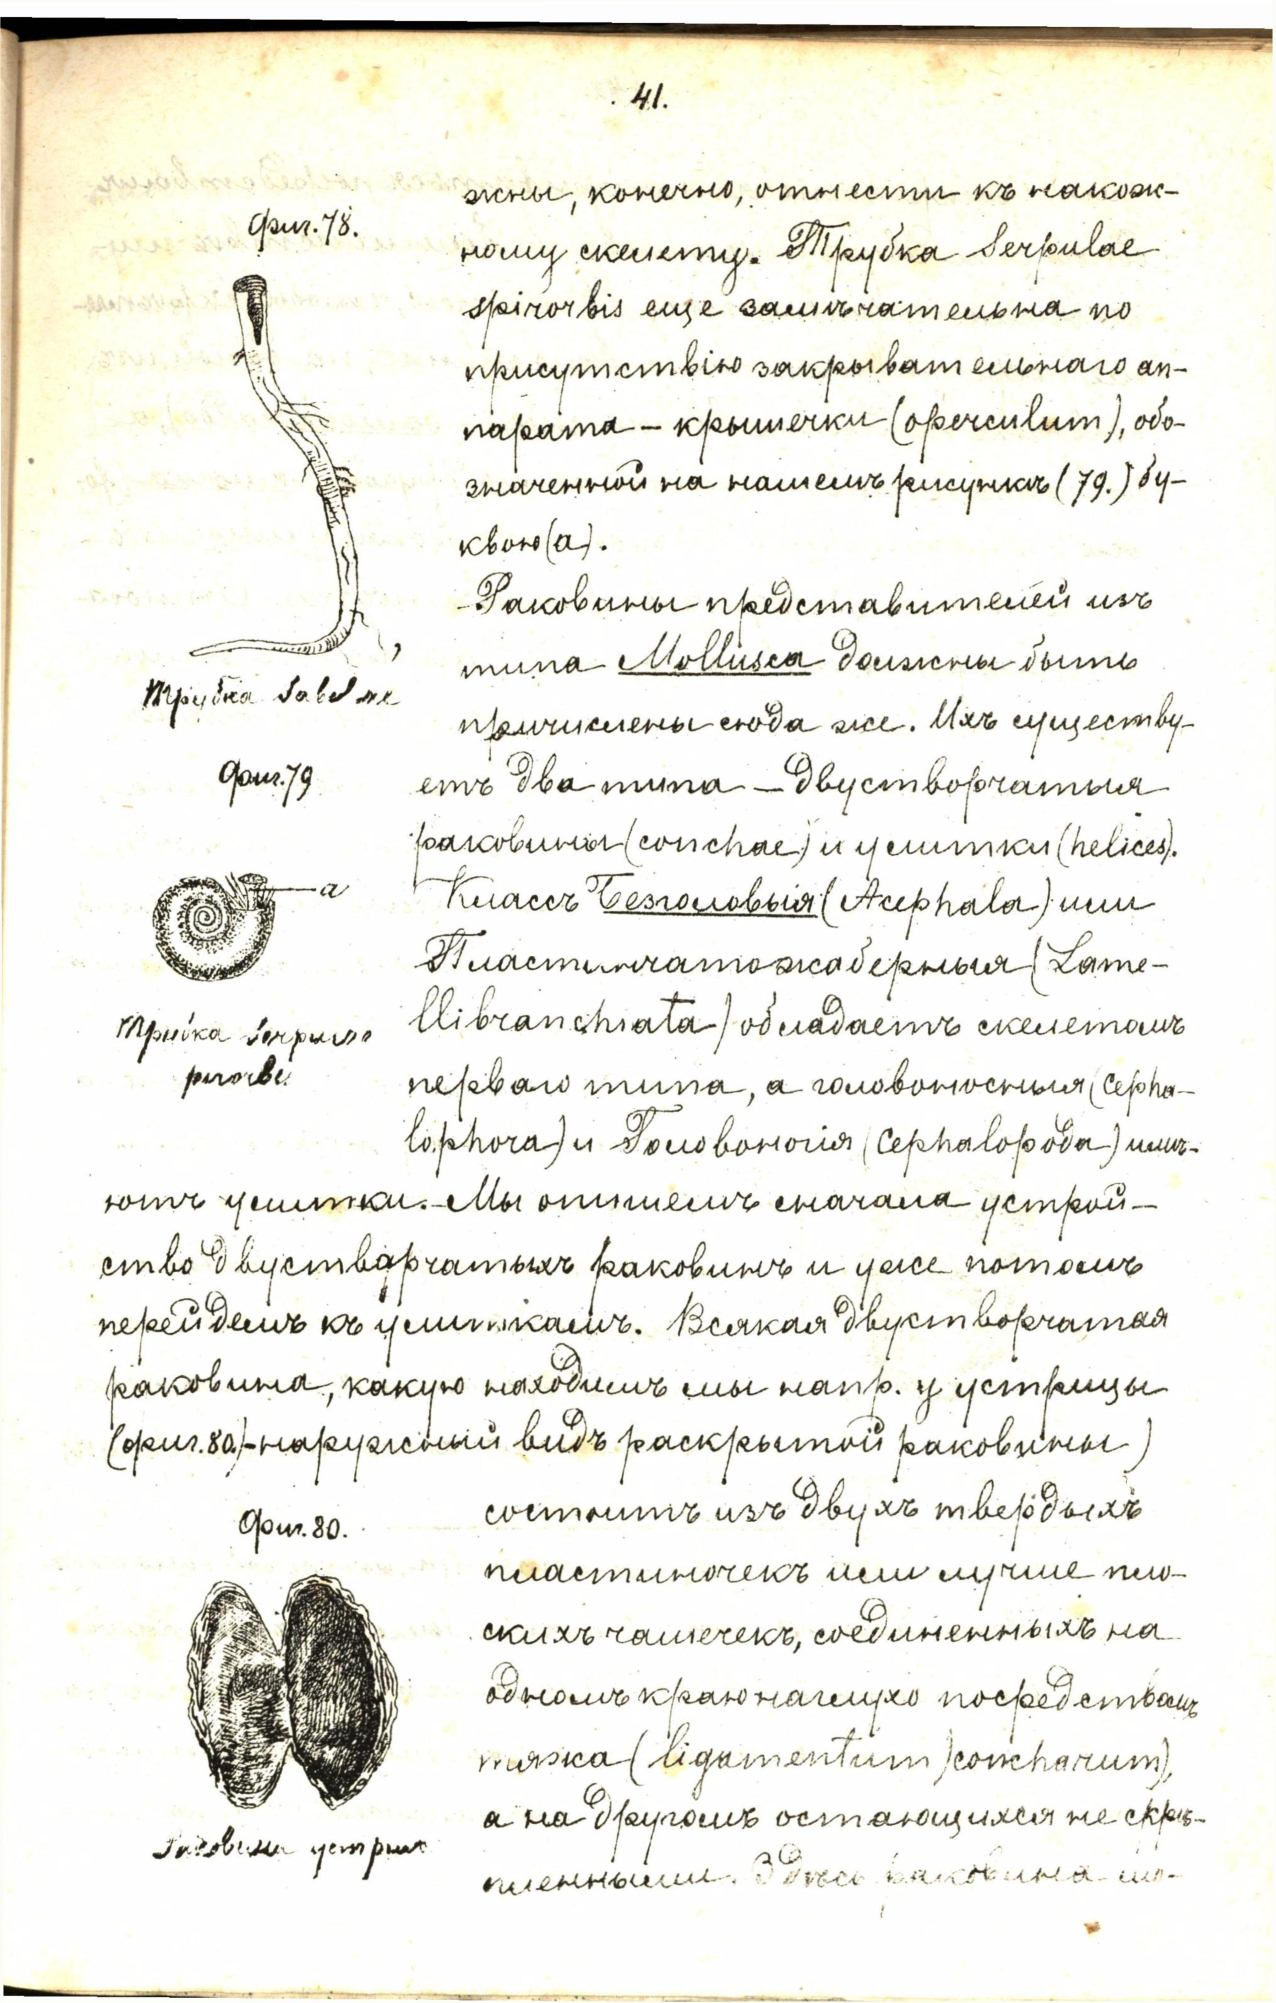 41.
жны, конечно, отнести къ накож-
ному скелету. Трубка Serpulae
spirorbis еще замѣчательна по
присутствію закрывательнаго ап-
парата – крышечки (operculum), обо-
значенной на нашемъ рисункѣ (79.) бу-
квою (а).
Фиг. 78.
Трубка Sabellae
Раковины представителей изъ
типа Mollusca должны быть
причислены сюда же. Ихъ существу-
етъ два типа – двустворчатыя
раковины (conchae) и улитки (helices).
Классъ Безголовыя (Acephala) или
Пластинчатожаберныя (Lame-
llibranchiata) обладаетъ скелетомъ
перваго типа, а головоносныя (Cepha-
lophora) и Головоногія (Cephalopoda) имѣ-
Фиг. 79
а
Трубка Serpulae
ютъ улитки. – Мы опишемъ сначала устрой-
ство двустворчатыхъ раковинъ и уже потомъ
перейдемъ къ улиткамъ. Всякая двустворчатая
раковина, какую находимъ мы напр. у устрицы
(фиг. 80.) – наружный видъ раскрытой раковины)
состоитъ изъ двухъ твердыхъ
пластиночекъ или лучше пло-
скихъ чашечекъ, соединенныхъ на
одномъ краю наглухо посредствомъ
тяжа (ligamentum) concharum),
а на другомъ остающихся не скрѣ-
пленными. Здѣсь раковина мо-
Фиг. 80.
Раковина устрицы